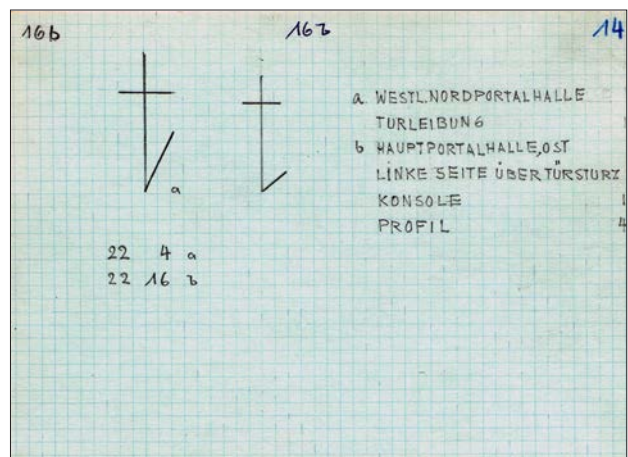 16b 16b 14
a WESTL.NORDPORTALHALLE
TURLEIBUNG 1
b HAUPTPORTALHALLE,OST
LINKE SEITE ÜBER TÜRSTURZ
KONSOLE 1
PROFIL 4
a
22 4 a
22 16 b